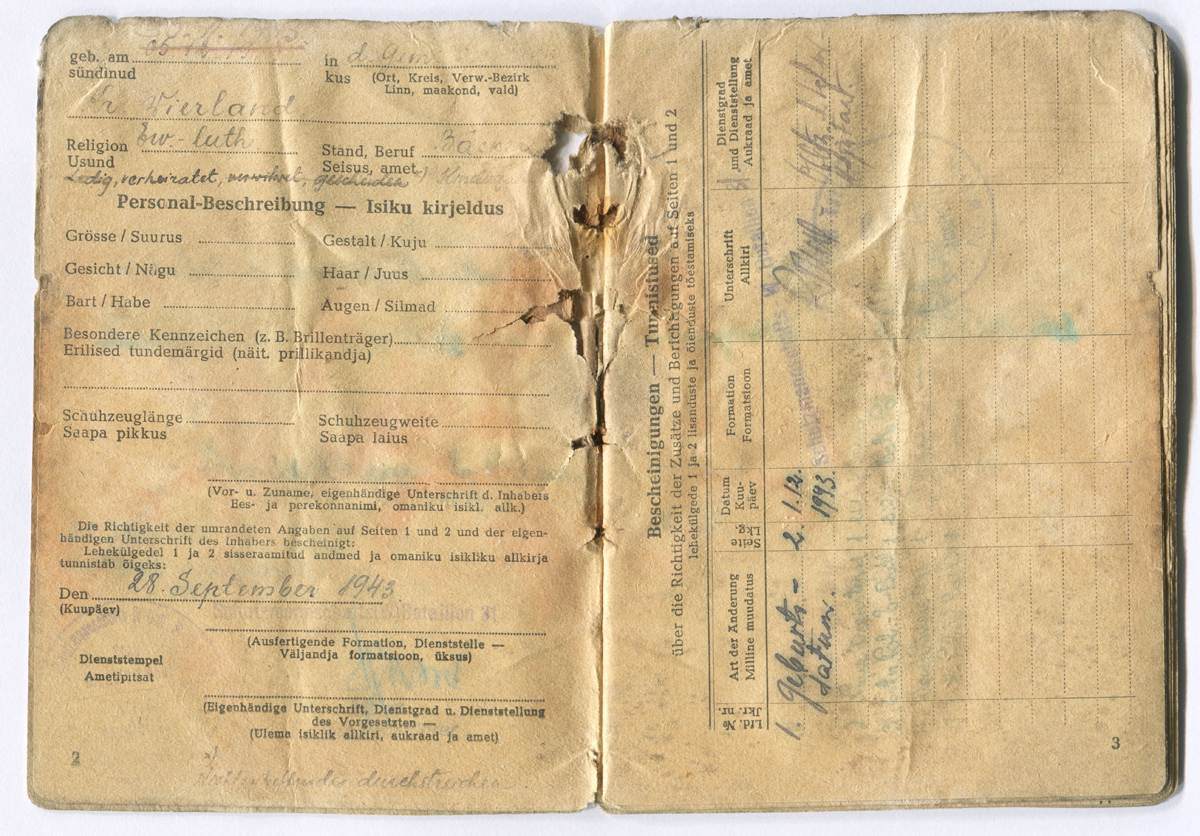 geb. am
sündinud
in
kus
(Ort, Kreis, Verw.-Bezirk
Linn, maakond, vald)
Kr Wierland
Religion Ew-luth
Usund
Stand, Beruf
Seisus, amet
Ledig, verheiratet, verwitwet, geschieden
Personal-Beschreibung — Isiku kirjeldus
Grösse / Suurus
Gestalt / Kuju
Gesicht / Nägu
Haar / Juus
Bart / Habe
Augen / Silmad
Besondere Kennzeichen (z. B. Brillenträger)
Erilised tundemärgid (näit. prillikandja)
Schuhzeuglänge
Saapa pikkus
Schuhzeugweite
Saapa laius
(Vor- u. Zuname, eigenhändige Unterschrift d. Inhabers
Ees- ja perekonnanimi, omaniku isikl. allk.)
Die Richtigkeit der umrandeten Angaben auf Seiten 1 und 2 und der eigen-
händigen Unterschrift des Inhabers bescheinigt:
Lehekülgedel 1 ja 2 sisseraamitud andmed ja omaniku isikliku allkirja
tunnistab õigeks:
Den 28. September 1943
(Kuupäev)
Bataillon 31
(Ausfertigende Formation, Dienststelle —
Väljandja formatsioon, üksus)
Dienststempel
Ametipitsat
(Eigenhändige Unterschrift, Dienstgrad u. Dienststellung
des Vorgesetzten —
(Ulema isiklik allkiri, aukraad ja amet)
2
Bescheinigungen — Tunnistused
über die Richtigkeit der Zusätze und Berichtigungen auf Seiten 1 und 2
lehekülgede 1 ja 2 lisanduste ja õienduste tõestamiseks
Lfd. №
Jkr. nr.
Art der Änderung
Milline muudatus
Seite
Lkg.
Datum
Kuu-
päev
Formation
Formatsioon
Unterschrift
Allkiri
Dienstgrad
und Dienststellung
Aukraad ja amet
1. Geburts- 2. 1.12.
datum. 1943.
3